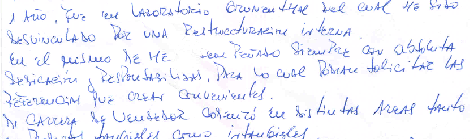 1 AÑO, FUE EN LABORATORIO DEL CUAL HE SIDO
DESVINCULADO POR UNA RESTRUCTURACION INTERNA
EN EL MISMO ME HE DESEMPEÑADO SIEMPRE CON ABSOLUTA
DEDICACION Y RESPONSABILIDAD, PARA LO CUAL PODRAN SOLICITAR LAS
REFERENCIAS QUE CREAN CONVENIENTES.
MI CARRERA DE VENDEDOR COMENZÓ EN DISTINTAS AREAS TANTO
TANGIBLES COMO INTANGIBLES